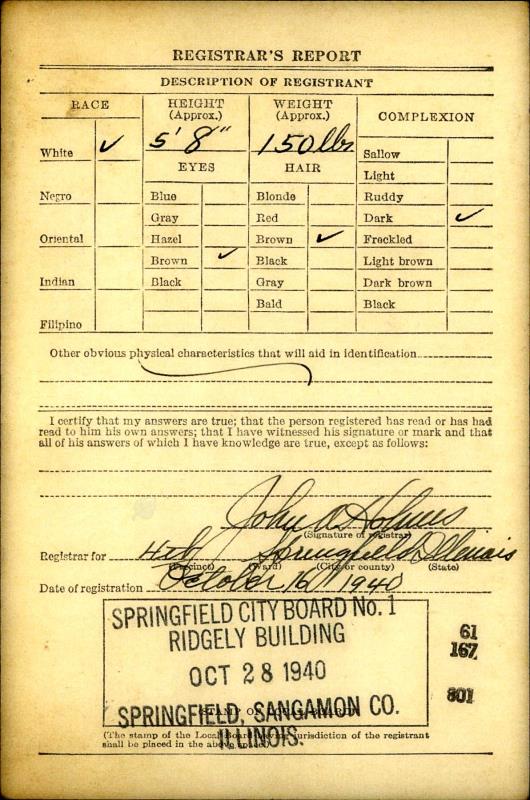 REGISTRAR'S REPORT
DESCRIPTION OF REGISTRANT
RACE
HEIGHT
(Approx.)
WEIGHT
(Approx.)
COMPLEXION
White ✓
5' 8"
150 lbs
Sallow
EYES
HAIR
Light
Negro
Blue
Blonde
Ruddy
Gray
Red
Dark ✓
Oriental
Hazel
Brown ✓
Freckled
Brown ✓
Black
Light brown
Indian
Black
Gray
Dark brown
Bald
Black
Filipino
Other obvious physical characteristics that will aid in identification
I certify that my answers are true; that the person registered has read or has had
read to him his own answers; that I have witnessed his signature or mark and that
all of his answers of which I have knowledge are true, except as follows:
John A Holmes
(Signature of registrar)
Registrar for Springfield Illinois
(Precinct) (Ward) (City or county) (State)
Date of registration October 16 1940
SPRINGFIELD CITY BOARD No. 1
RIDGELY BUILDING
OCT 28 1940
SPRINGFIELD, SANGAMON CO.
ILLINOIS.
61
167
801
(STAMP OF LOCAL BOARD)
(The stamp of the Local Board having jurisdiction of the registrant
shall be placed in the above space.)